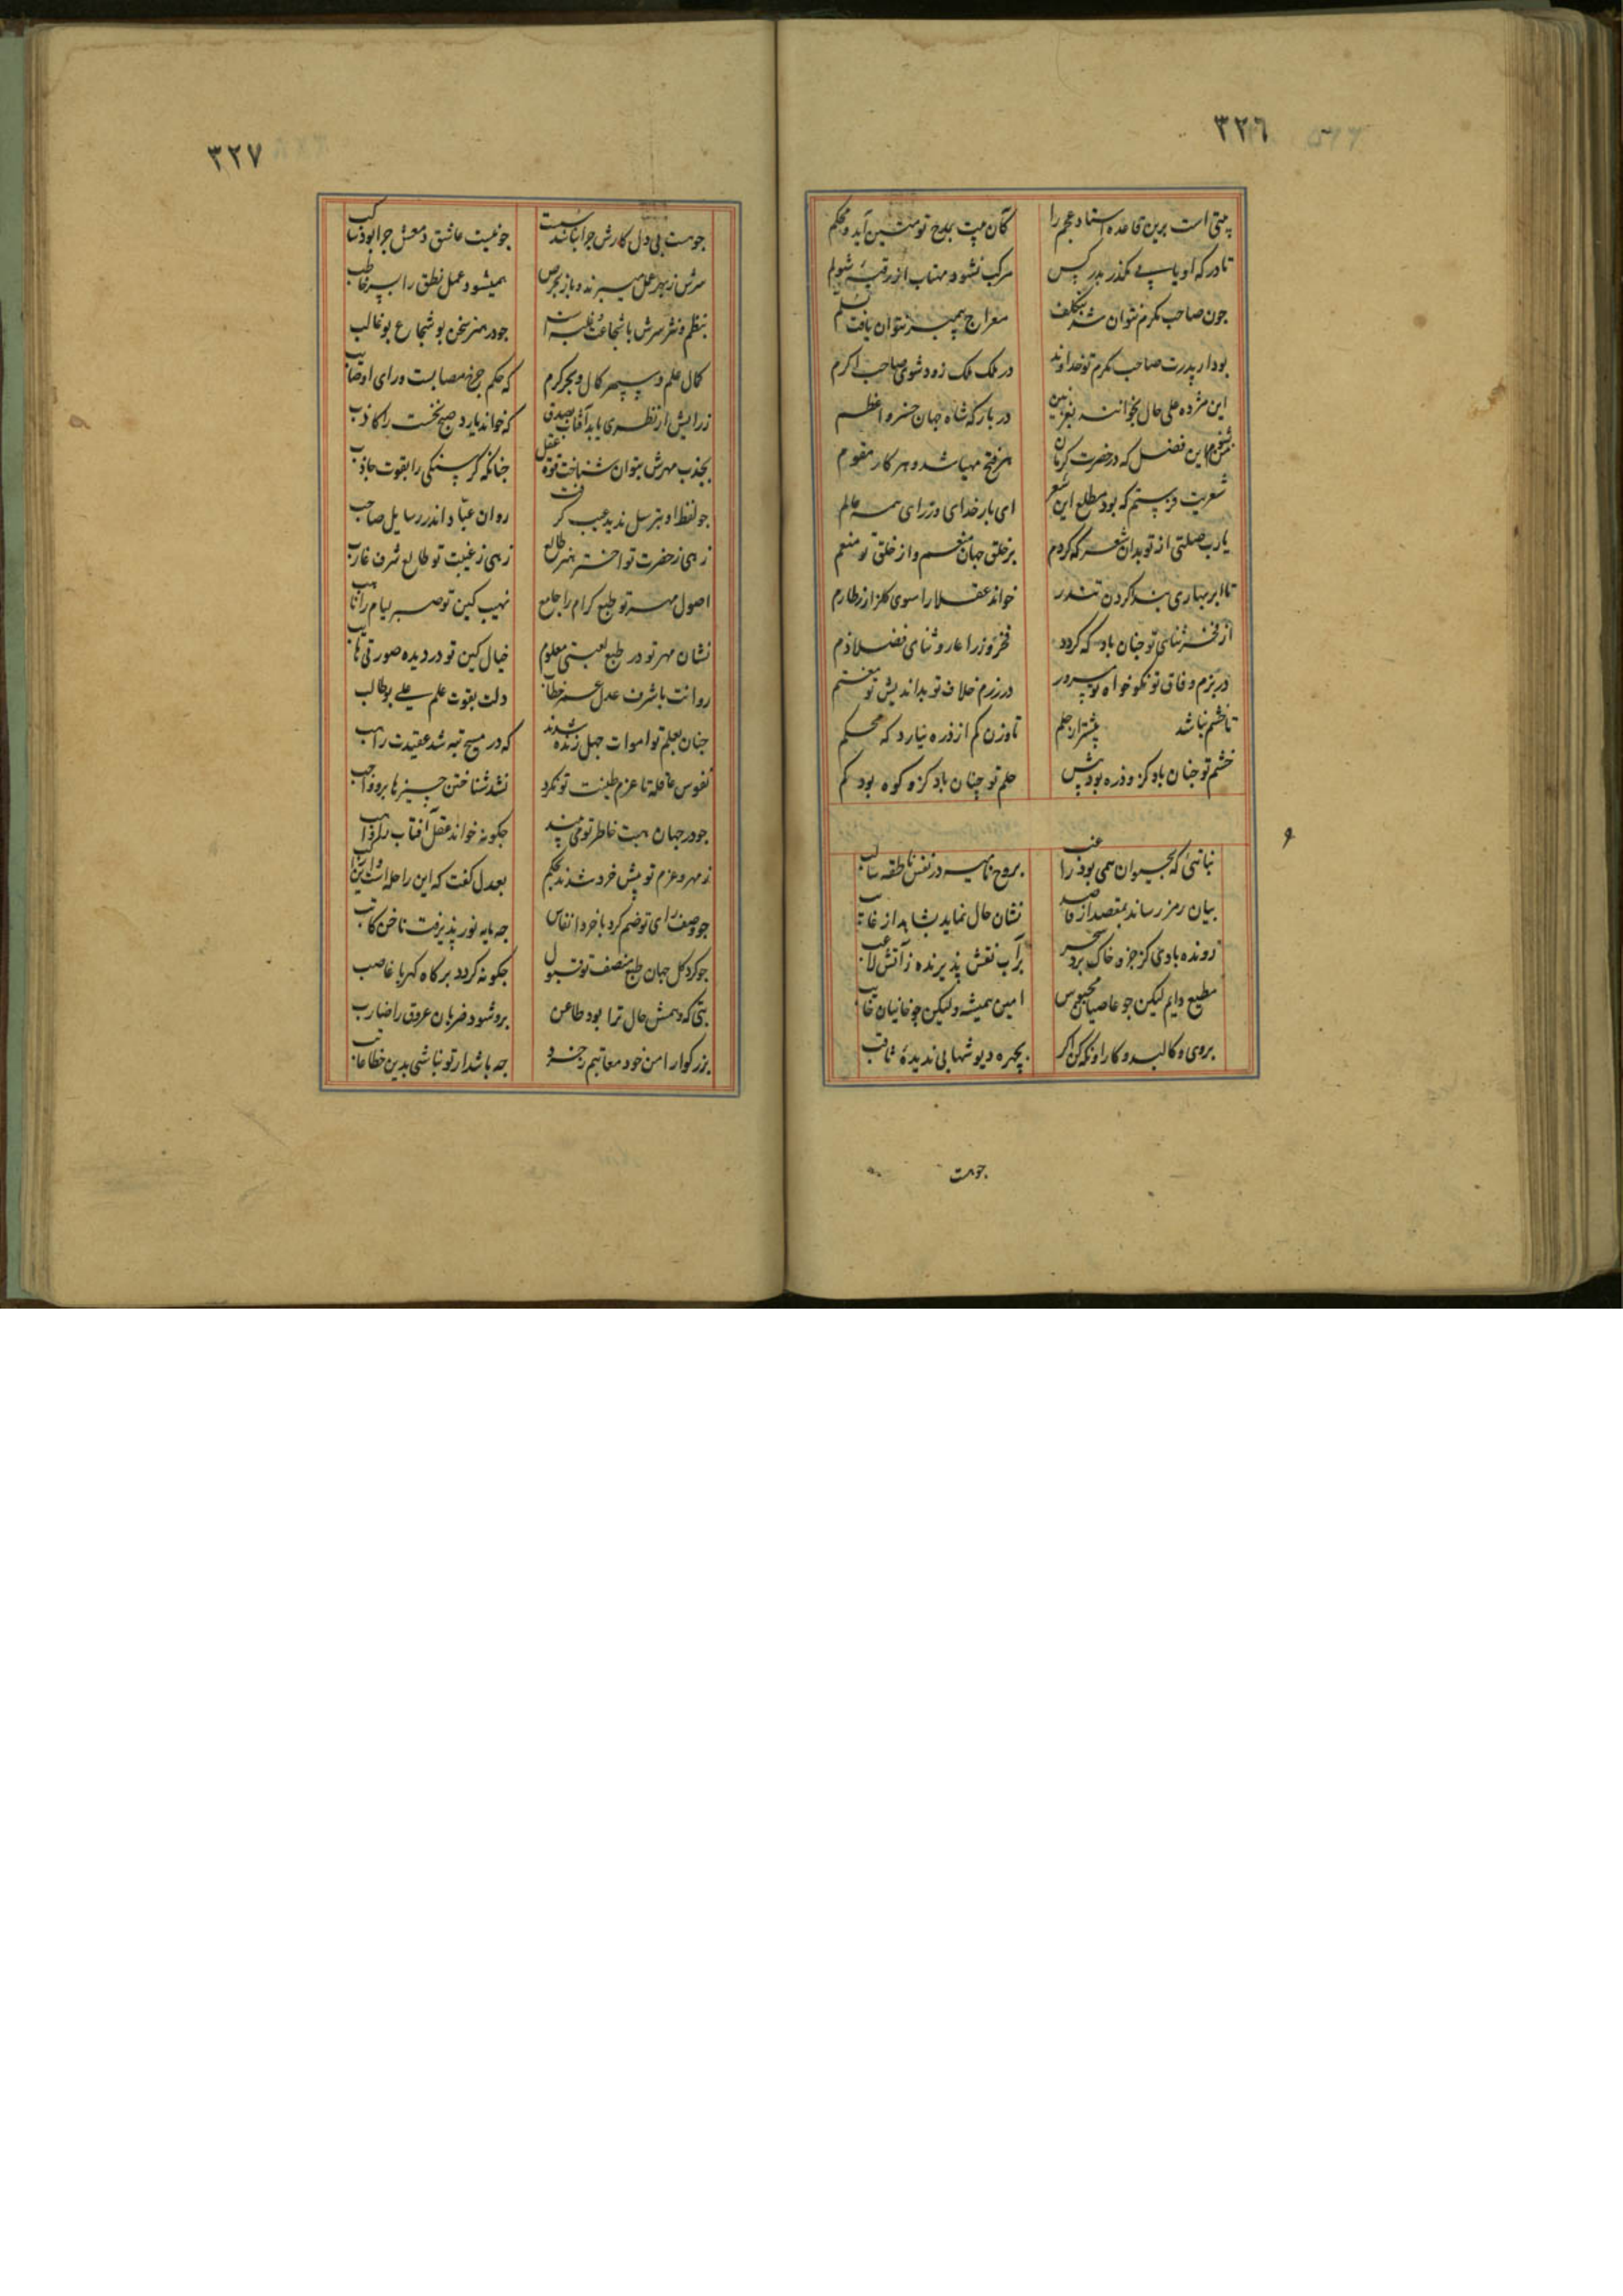 ٣٢٦
بیتی است برین قاعده استاد عجم را
کان بیت بمدح تو متین آید و محکم
تا در که او یا بی مگذر بدر کس
مرکب نشود مهتاب از
چون صاحب مکرم نتوان شد بتکلف
معراج پیمبر نتوان یافت بسلم
بود ار پدرت صاحب مکرم تو خداوند
در ملک ملک زود شوی صاحب اکرم
این مژده علی حال بخوانند بغزنین
در بارکه شاه جهان خسرو اعظم
این فضل که در حضرت کرمان
هر فتح مهیا شد و هر کار مقوم
شعریت فرستم که بود مطلع این شعر
ای بار خدای وزرای همه عالم
یارب صلتی از تو بدان شعر که کردم
بر خلق جهان منعم و از خلق تو منعم
تا ابر بهاری بکردن تندر
خواند عقلا را سوی کلزار ز طارم
از فخر ثنای تو جنان باد که کردد
فخر وزرا عار و ثنای فضلا ذم
در بزم وفاق تو نکوخواه تو مسرور
در رزم خلاف تو بداندیش تو مغتم
تا خشم نباشد بیشتر از حلم
تا وزن کم از ذره نیارد که محکم
خشم تو جنان باد کزو ذره بود بیش
حلم تو چنان باد کزو کوه بود کم
نباتئی که بحیوان همی بود راغب
بروح نامیه در نفس ناطقه سالب
بیان رمز رساند بمقصد از قاصد
نشان حال نماید بشاهد از غائب
رونده بادی کز جزو خاک برد سحر
بر آب نقش پذیرنده ز آتش لاعب
مطیع دایم لیکن جو عاصیان محبوس
امین همیشه ولیکن چو خانیان خایب
بروی و کالبد و کار او نکه کن اکر
بچهره دیو شهابی ندیدهٔ ثاقب
جوهست
٣٢٧
جوهست بی دل کارش جرا نباشد سست
جو نیست عاشق دمعش جرا بود ساکب
سرش ز بهر عمل میبرند و باز بحرص
همیشود عمل نطق را بسر خاطب
بنظم و نثر سرش با شجاعت غلبه است
جو در هنر سخن بو شجاع بو غالب
کمال علم و سپهر کمال و بحر کرم
که حکم جرخ مصابست و رای او صایب
ز رایش ار نظری یابد آفتاب بصدق
که خواند یارد صبح نخست را کاذب
بجذب مهرش بتوان شناخت قوة عقل
جنانکه کرسنکی را بقوت جاذب
جو لفظ او بترسل ندید عیب کرفت
روان عبّاد اندر رسایل صاحب
زهی ز حضرت تو اختر هنر طالع
زهی ز غیبت تو طالع شرف غارب
اصول مهر تو طبع کرام را جامع
نهیب کین تو صبر لیام را ناهب
نشان مهر تو در طبع لعبتی معلوم
خیال کین تو در دیده صورتی هایب
روانت با شرف عدل عمر خطاب
دلت بقوت علم علی بوطالب
جنان بعلم تو اموات جهل زنده شدند
که در مسیح تبه شد عقیدت راهب
نفوس عاقله تا عزم طینت تو نکرد
نشد شناختن چیزها برو واجب
جو در جهان هبت خاطر تو می بیند
جکونه خواند عقل آفتاب را واهب
ز مهر و عزم تو پیش خرد شدند بحکم
بعدل کفت که این راحله است این راکب
جو وصف رای تو ضم کرد با خرد انفاس
جه مایه نور پذیرفت ناخن کاتب
جو کرد کل جهان طبع منصف تو قبول
جکونه کردد بر کاه کهربا غاصب
بتی که دهمش حال ترا بود طاعن
برو شود ضربان عروق را ضارب
بزرکوارا من خود معاتبم ز خرد
جه باشد ار تو نباشی بدین خطا عاتب